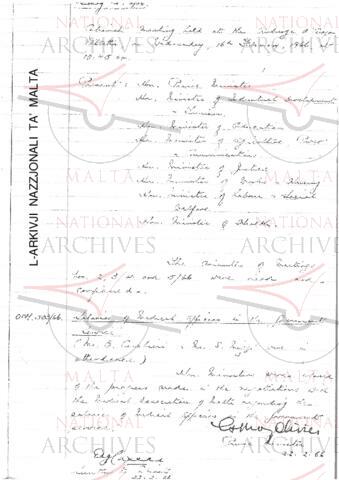 L-ARKIVJI NAZZJONALI TA' MALTA
NATIONAL
ARCHIVES
MALTA
Cabinet Meeting held at the Auberge d'Aragon
Valletta Wednesday, 16th February, 1966 at
10.45 am.
Present:- Hon. Prime Minister
Hon. Minister of Industrial Development
& Tourism
Hon. Minister of Education
Hon. Minister of Agriculture, Power
& Communications
Hon. Minister of Justice
Hon. Minister of Works & Housing
Hon. Minister of Labour & Social
Welfare
Hon. Minister of Health.
The minutes of Meetings
Nos. 2, 3, 4 and 5/66 were read and
confirmed.
Salaries of Medical Officers in the Government
service
in
attendance)
Hon. Ministers were
of the progress made in the negotiations with
the Medical Association of Malta regarding the
salaries of Medical Officers in the Government
service.
Prime Minister
22.2.66
22.2.66